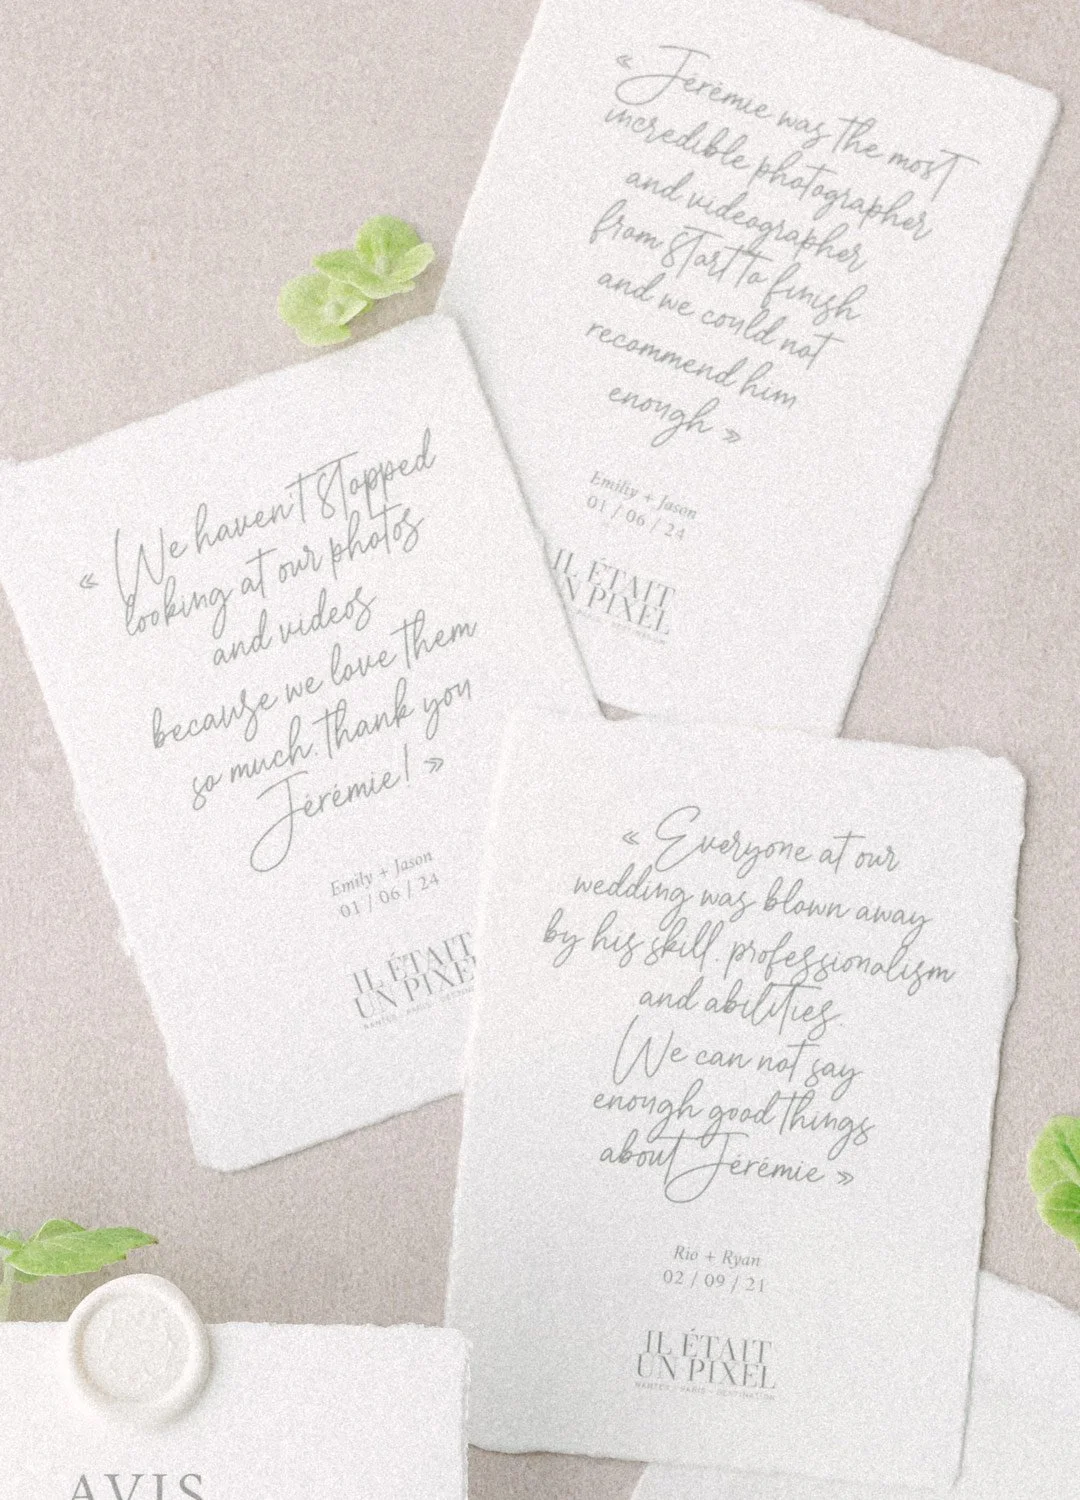 « Jérémie was the most
incredible photographer
and videographer
from start to finish
and we could not
recommend him
enough »
Emiliy + Jason
01 / 06 / 24
IL ÉTAIT
UN PIXEL
« We haven't stopped
looking at our photos
and videos
because we love them
so much. thank you
Jérémie! »
Emily + Jason
01 / 06 / 24
IL ÉTAIT
UN PIXEL
NANTES - PARIS -
« Everyone at our
wedding was blown away
by his skill. professionalism
and abilities.
We can not say
enough good things
about Jérémie »
Rio + Ryan
02 / 09 / 21
IL ÉTAIT
UN PIXEL
NANTES - PARIS - DESTINATION
AVIS